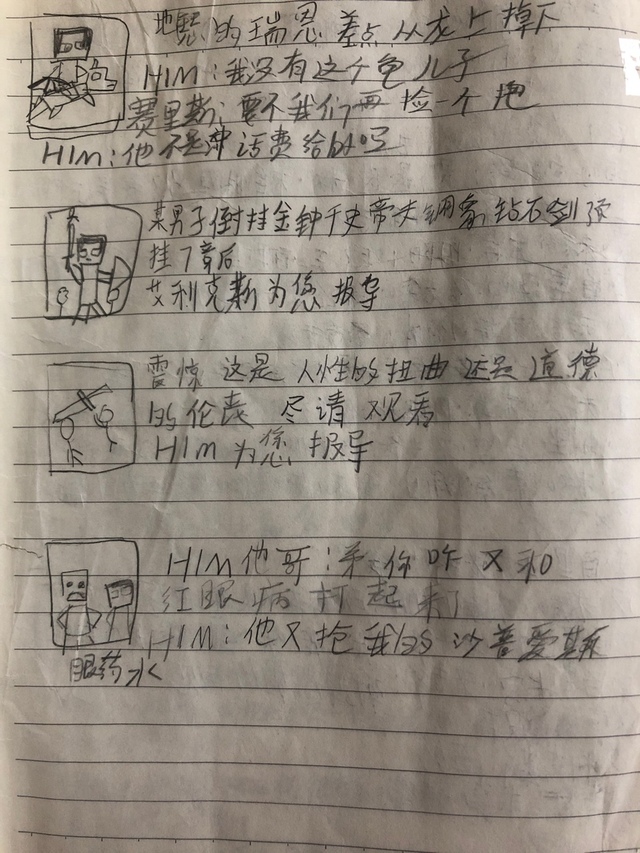 的瑞恩差点从龙上掉下
HIM:我没有这个龟儿子
赛里斯:要不我们再捡一个抱
HIM:他不是冲话费给的吗
某男子倒挂金钟千史帝夫钻石剑
挂了彰后
艾利克斯为您报导
震惊 这是 人性的扭曲 还是 道德
的伦丧 尽请 观看
HIM 为您 报导
HIM他哥:弟你咋又和
红眼病打起来了
HIM:他又抢我的沙普爱斯
眼药水